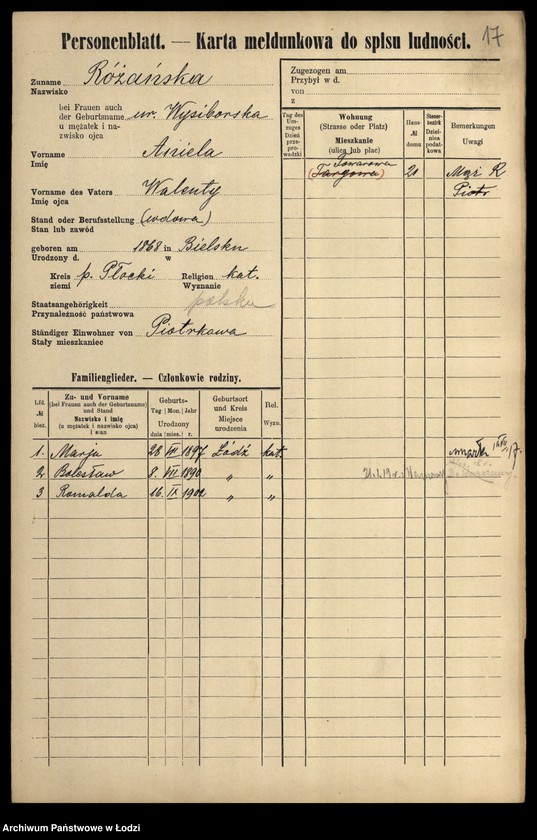 17
Personenblatt. — Karta meldunkowa do spisu ludności.
Zuname Różańska
Nazwisko
bei Frauen auch
der Geburtsname ur. Wysiborska
u mężatek i na-
zwisko ojca
Vorname Aniela
Imię
Vorname des Vaters Walenty
Imię ojca
Stand oder Berufsstellung (wdowa)
Stan lub zawód
geboren am 1868 in Bielsku
Urodzony d. w
Kreis p. Płocki Religion kat.
ziemi Wyznanie
Staatsangehörigkeit polska
Przynależność państwowa
Ständiger Einwohner von Piotrkowa
Stały mieszkaniec
Zugezogen am
Przybył w d.
von
z
Tag des Um-zuges
Dzień przepro-wadzki
Wohnung
(Strasse oder Platz)
Mieszkanie
(ulica lub plac)
Haus-
№
domu
Steuer-
bezirk
Dziel-
nica
podat-
kowa
Bemerkungen
Uwagi
Towarowa
(Targowa) 20 Mąż R
Piotr
Familienglieder. — Członkowie rodziny.
Lfd.
№
bież.
Zu- und Vorname
(bei Frauen auch der Geburtsname)
und Stand
Nazwisko i imię
(u mężatek i nazwisko ojca)
i stan
Geburts-
Tag Mon. Jahr
Urodzony
dnia mies. r.
Geburtsort
und Kreis
Miejsce
urodzenia
Rel.
Wyzn.
1. Marja 28 VIII 1897 Łódź kat. umarła
2 Bolesław 8. VII 1890 " "
3 Romalda 16. IX 1902 " "
Archiwum Państwowe w Łodzi